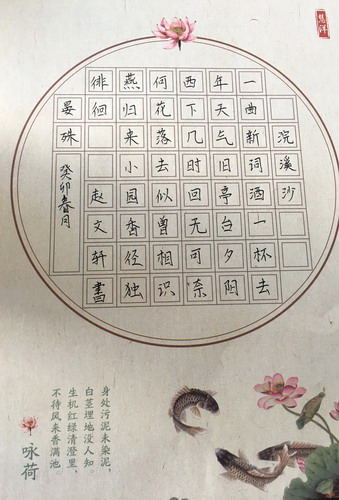 浣溪沙
一曲新词酒一杯去
年天气旧亭台夕阳
西下几时回无可奈
何花落去似曾相识
燕归来小园香径独
徘徊 赵文轩書
晏殊 癸卯春月
身处污泥未染泥，
白茎埋地没人知
生机红绿清澄里，
不待风来香满池
咏荷